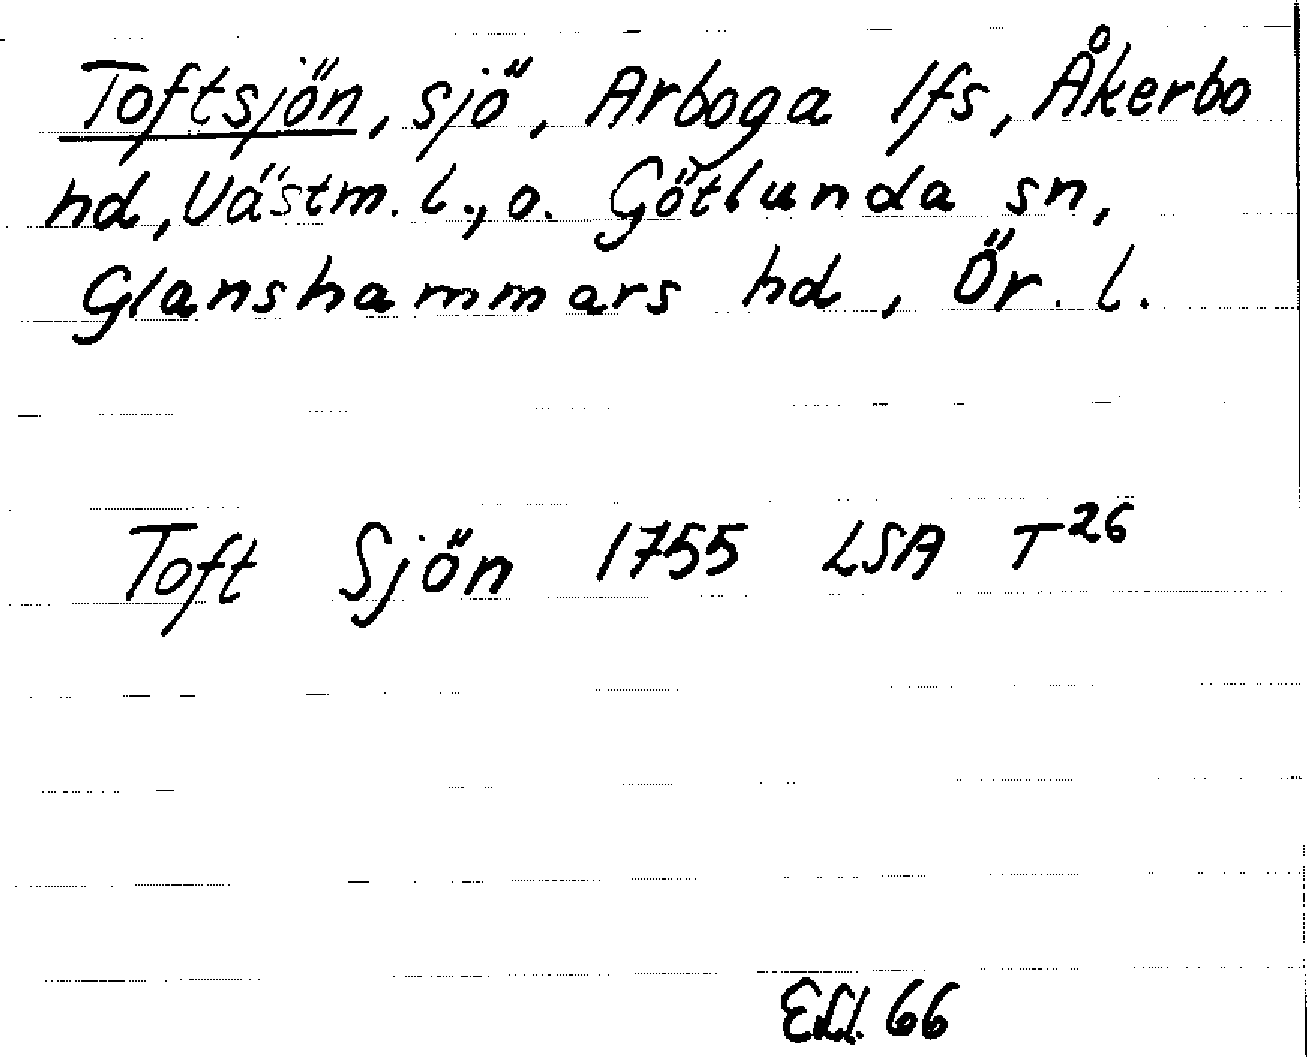 Toftsjön, sjö, Arboga lfs, Åkerbo
hd, Västm. l., o. Götlunda sn,
Glanshammars hd, Ör. l.
Toft Sjön 1755 LSA T26
66